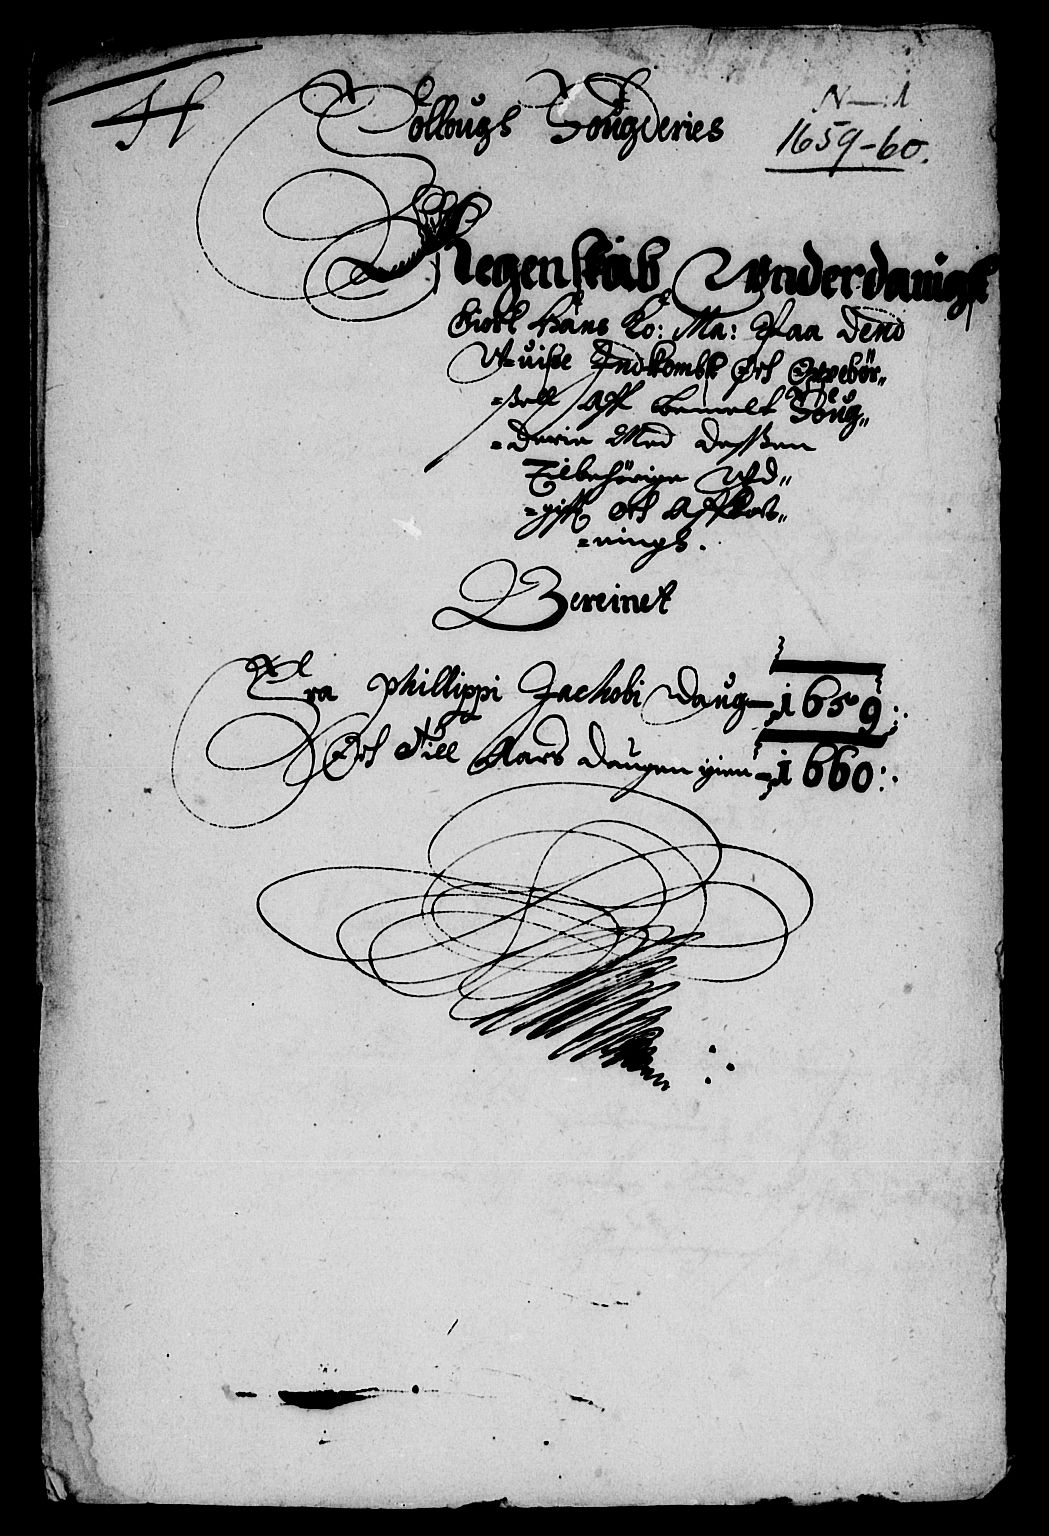 N: 1
1659-60.
Follougs Fougderies
Regenskab Vnderdanigst
Giort Hans Ko: Ma: Paa dend
Wuisse Indkombst Och Opebör„
-sell Aff bemelt Foug„
-derie Med dessen
Tilbehörige Vd„
-gifft Och Affkort„
-nings.
Bereinet
Fra Phillippi Jachobi Daug 1659:
Och Till Aars Daugen igien 1660: